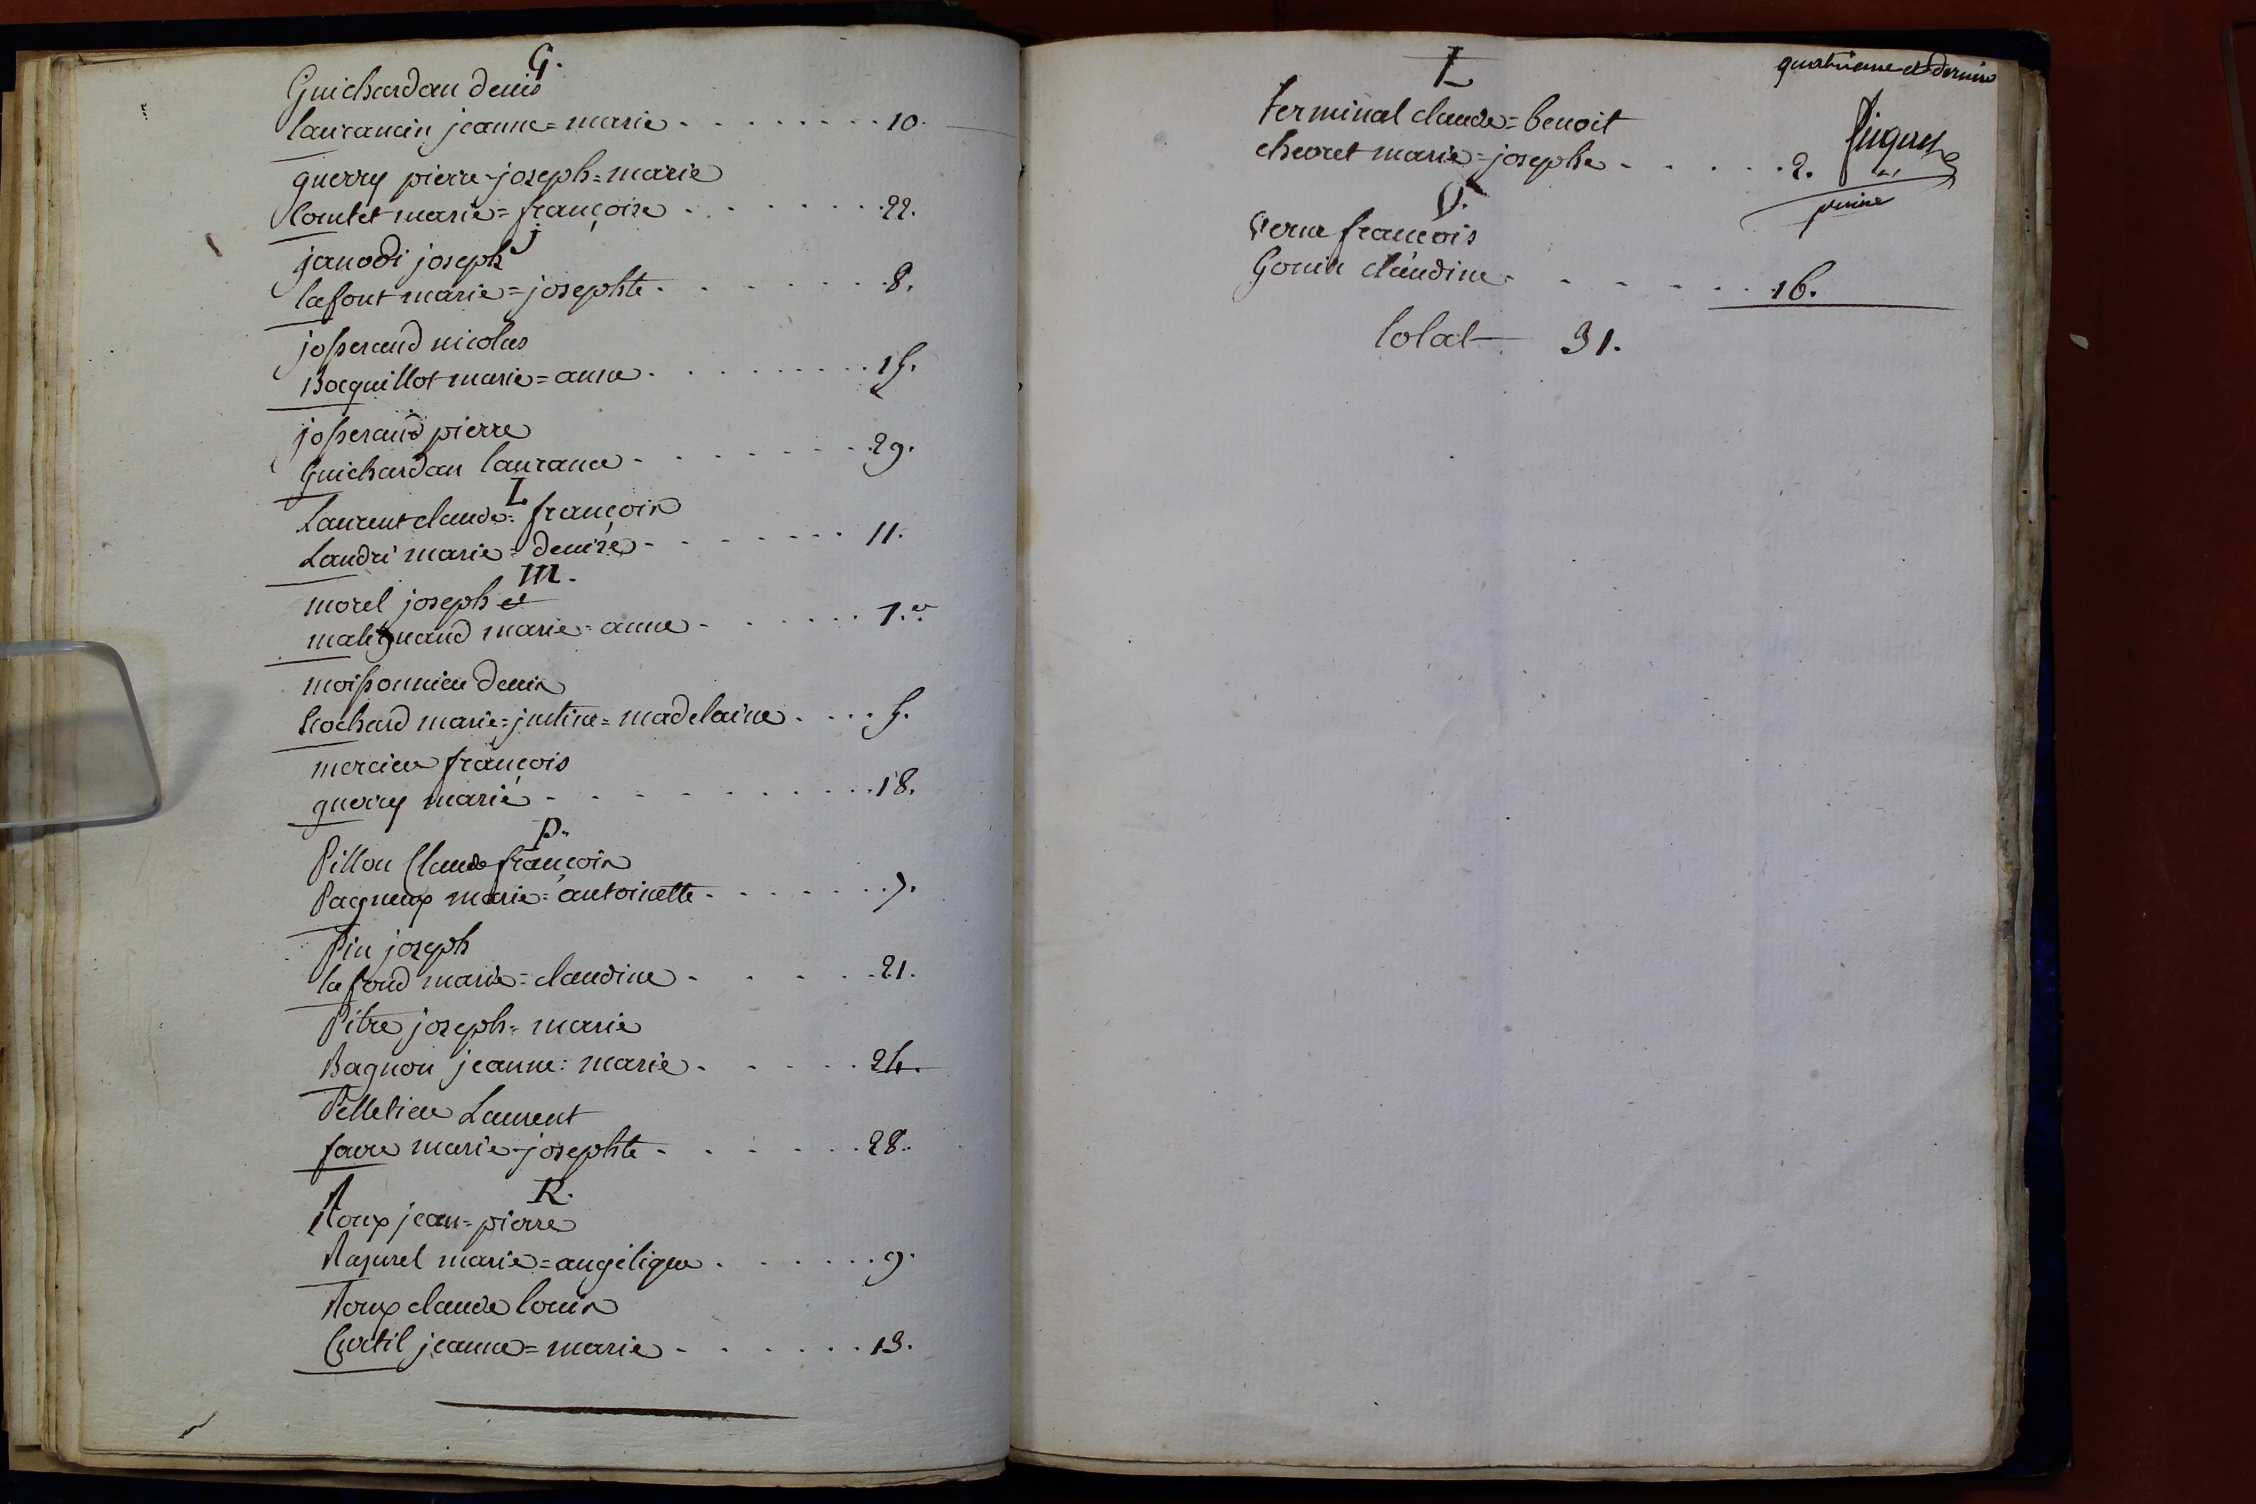 G.
Guichardan denis
laurancin jeanne=marie - - - - - - - 10.
guerry pierre-joseph=marie
Coulet marie=françoise - - - - - - - 22.
j
janodi joseph
lafont marie=josephte - - - - - - - 8.
josserand nicolas
Bocquillot marie=anne - - - - - - - 15.
josserand pierre
Guichardan laurance - - - - - - - 29.
L
Laurent claude=françois
Landri marie=denise - - - - - - - 11.
m.
morel joseph et
malignand marie=anne - - - - - - 1.er
moissonnier denis
trochard marie=justine=madelaine - - - - 5.
mercier françois
guerry marie - - - - - - - - - 18.
P.
Pillon Claude françois
Pagneux marie=antoinette - - - - - - 7.
Pin joseph
lafond marie=claudine - - - - - 21.
Pitre joseph=marie
Bagnon jeanne=marie - - - - - 24.
Pelletier Laurent
favre marie-josephte - - - - - - 28.
R.
Roux jean=pierre
Rapurel marie=angelique - - - - - - 9.
Roux claude louis
Curtil jeanne=marie - - - - - - 13.
quatrieme et dernier
T
terminal claude=benoit
chevret marie=josephe - - - - - 2.
V.
Verne françois
Gonin claudine - - - - - - 16.
total 31.